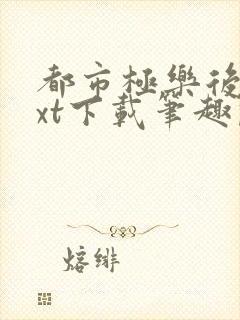 都市極樂後
xt下載筆趣
熔緋